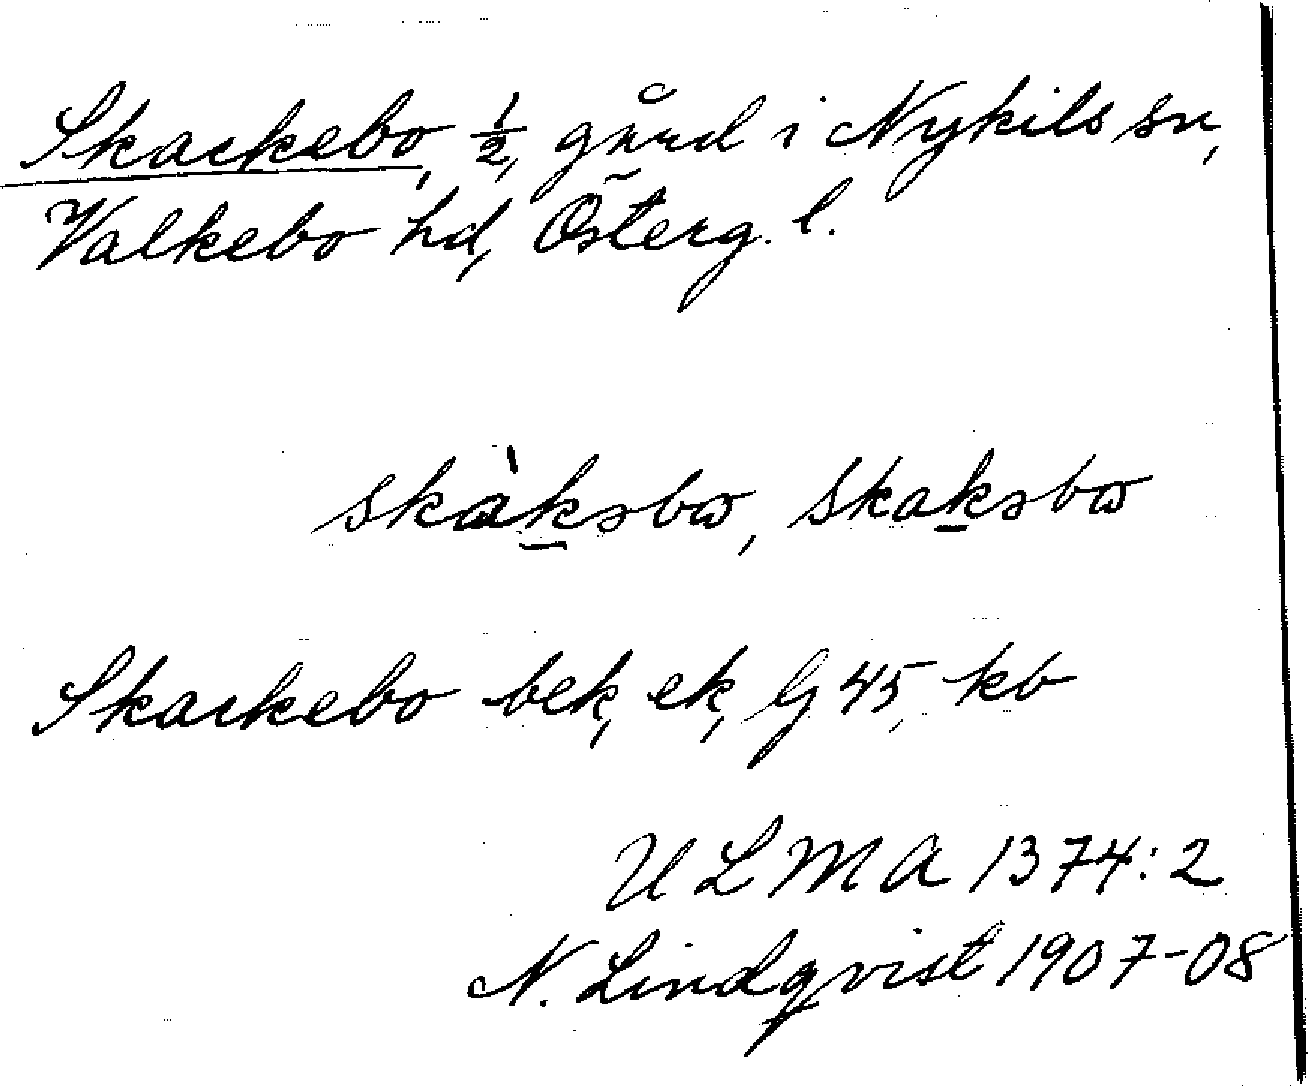 Skackebo, ½, gård i Nykils sn,
Valkebo hd, Österg. l.
skàk̲əbɷ, skak̲əbɷ
Skackebo bek, ek, lj 45, kb
ULMA 1374:2
N. Lindqvist 1907-08